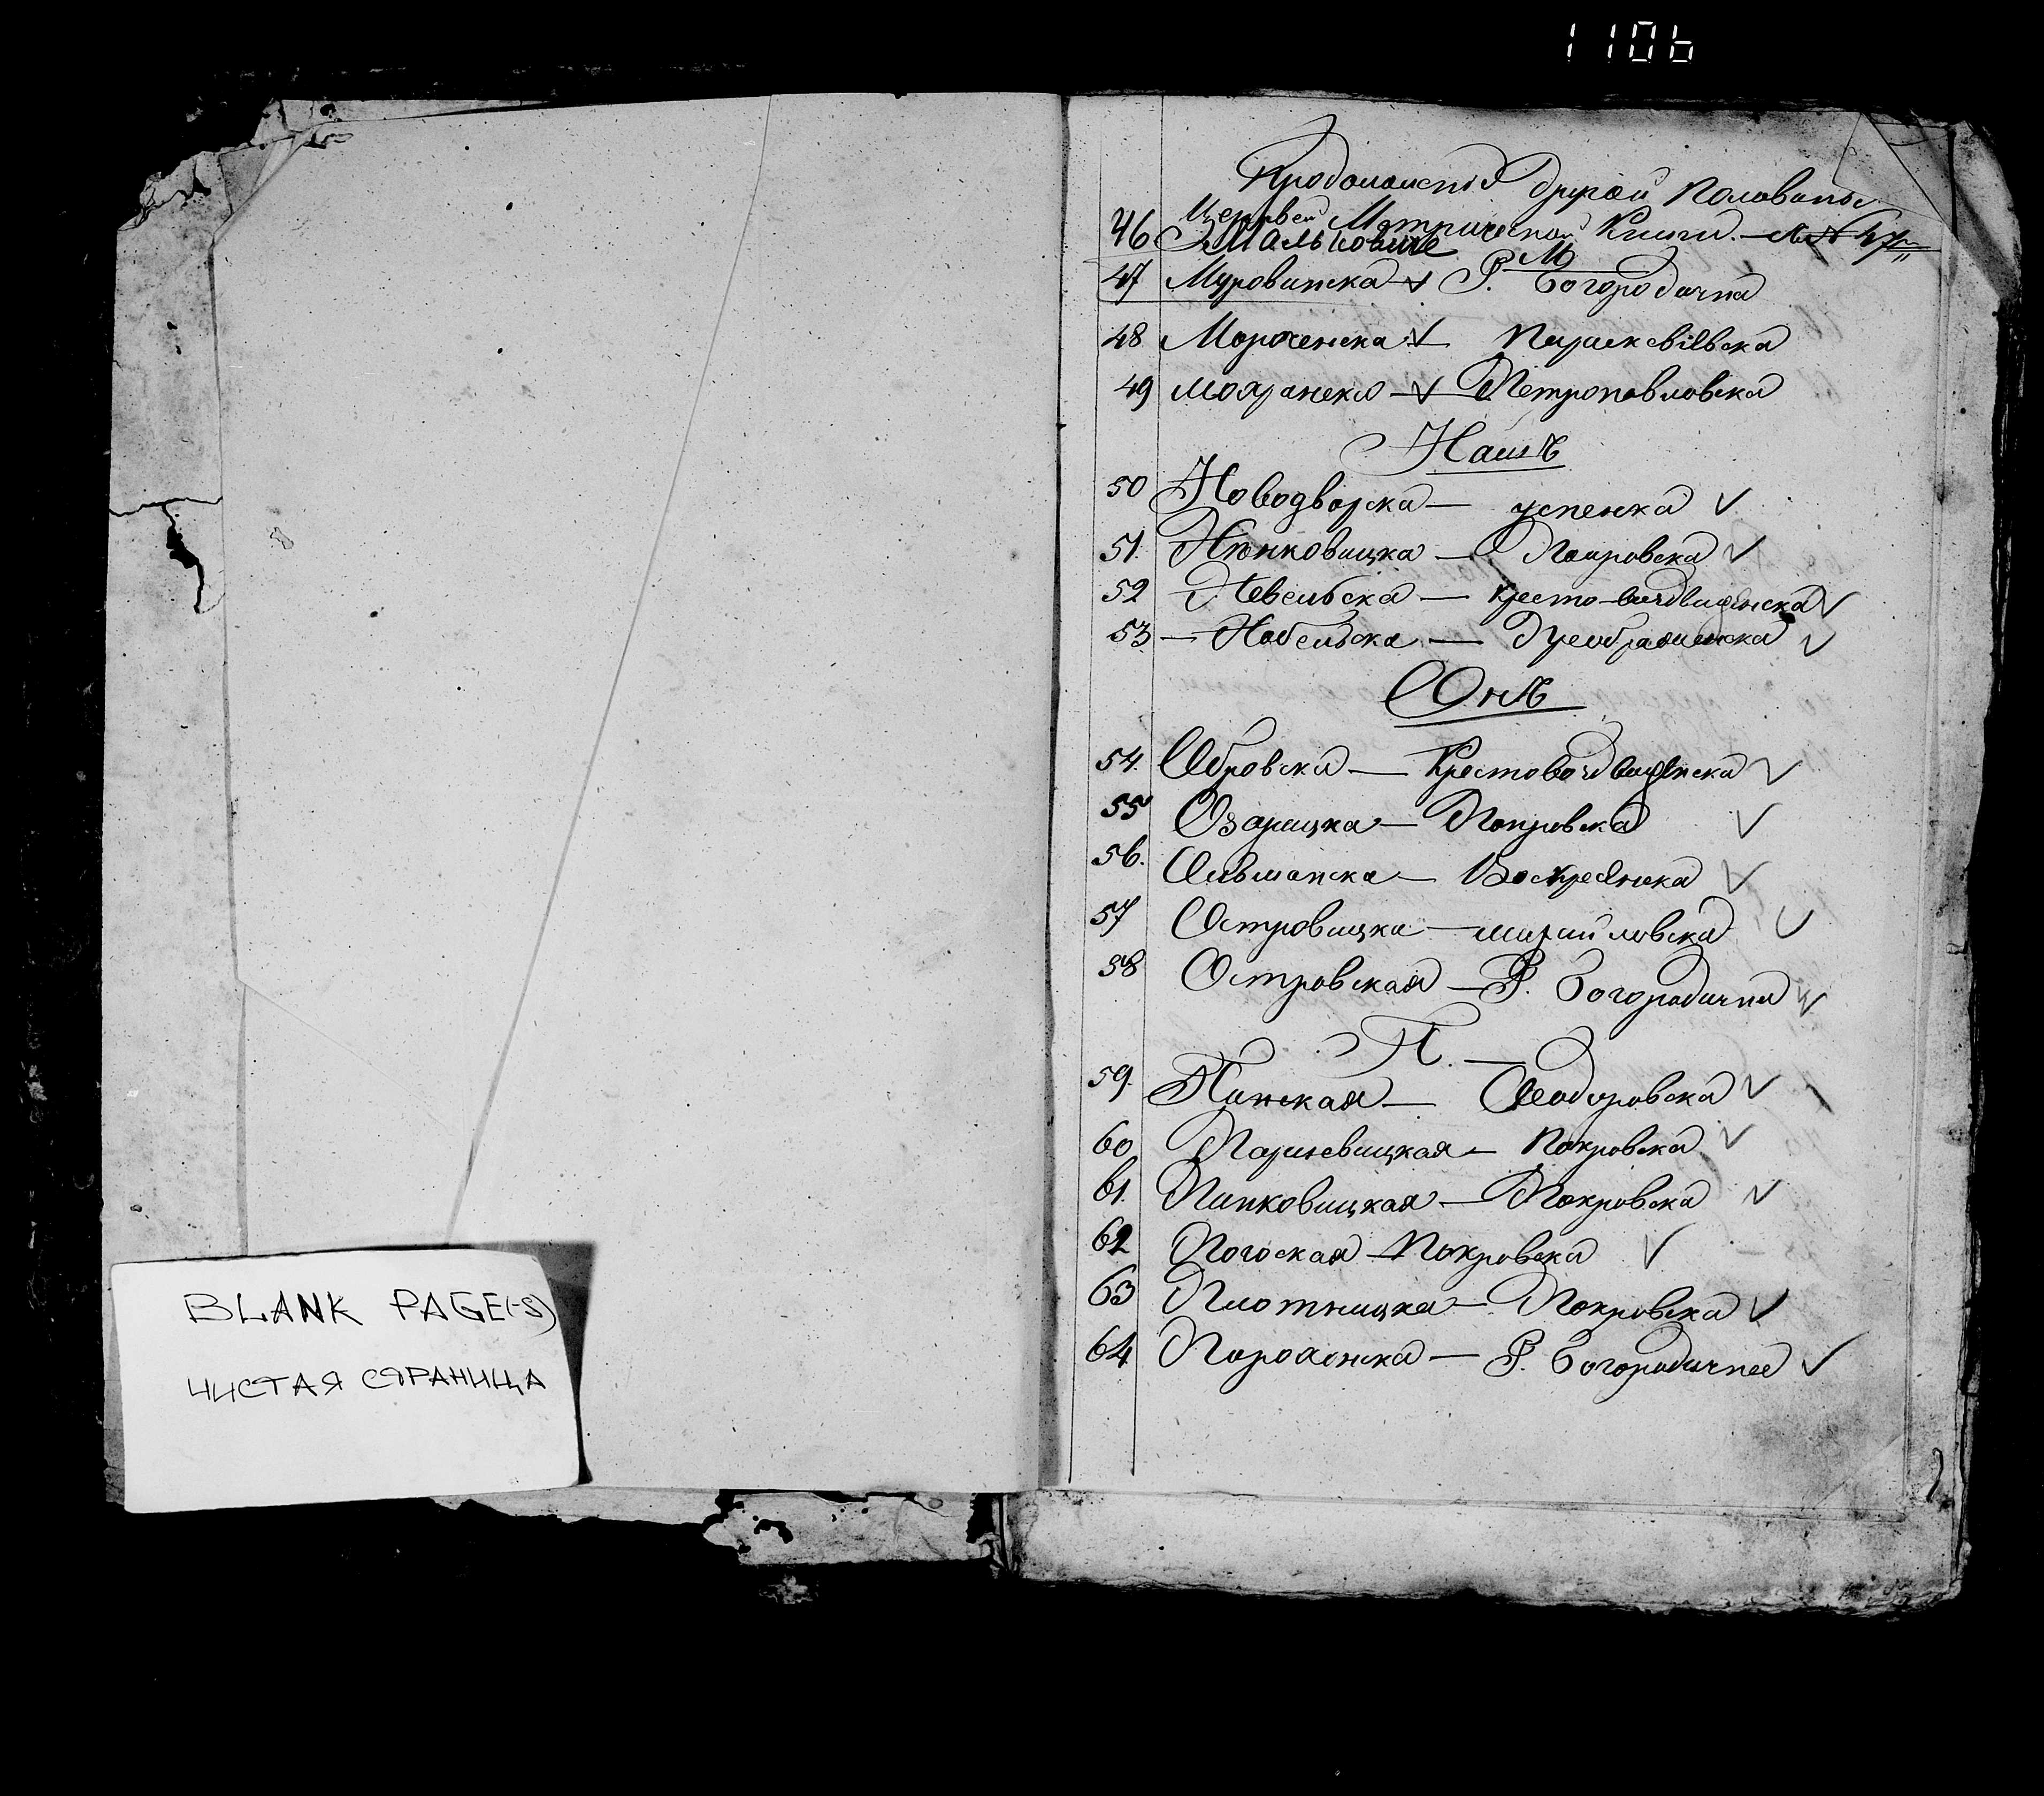 1106
Продолженіе другой половины
Церквей Метрической Книги. — № 47
46 Мальковице
М
47 Муровинска — Р. Богородична
48 Мороченска — Параскевіевска
49 Мохранска — Петропавловска
Нашъ
50 Новодворска — успенска
51. Нянковицка — Покровска
52 Невельска — Кресто-воздвиженска
53 — Нобельска — Преображенска
Онъ
54. Обровска — Крестовоздвиженска
55 Озарицка — Покровска
56. Ольшанска — Воскресенска
57 Островицка — михайловска
58 Островская — Р. Богородична
П. —
59. Пинская — Феодоровска
60 Паршевицкая — Покровска
61. Пинковицкая — Покровска
62 Погоская — Покровска
63 Плотницка — Покровска
64 Порохонска — Р. Богородичнее
BLANK PAGE(-S)
ЧИСТАЯ СТРАНИЦА